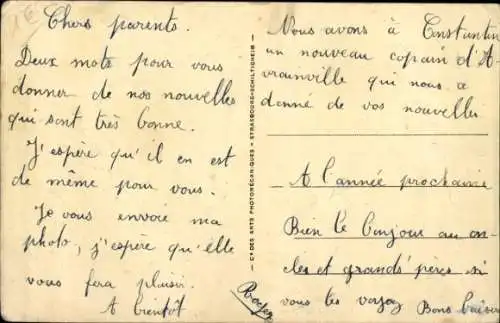 Chers parents.
Deux mots pour vous
donner de nos nouvelles
qui sont très bonne.
J'espère qu'il en est
de même pour vous.
Je vous envoie ma
photo, j'espère qu'elle
vous fera plaisir.
A bientôt
Cie DES ARTS PHOTOMÉCANIQUES - STRASBOURG-SCHILTIGHEIM
Nous avons à Constantin
un nouveau copain d'A
vrainville qui nous a
donné de vos nouvelles
A l'année prochaine
Bien le bonjour au on-
cles et grands'pères si
vous les voyez Bons baiser